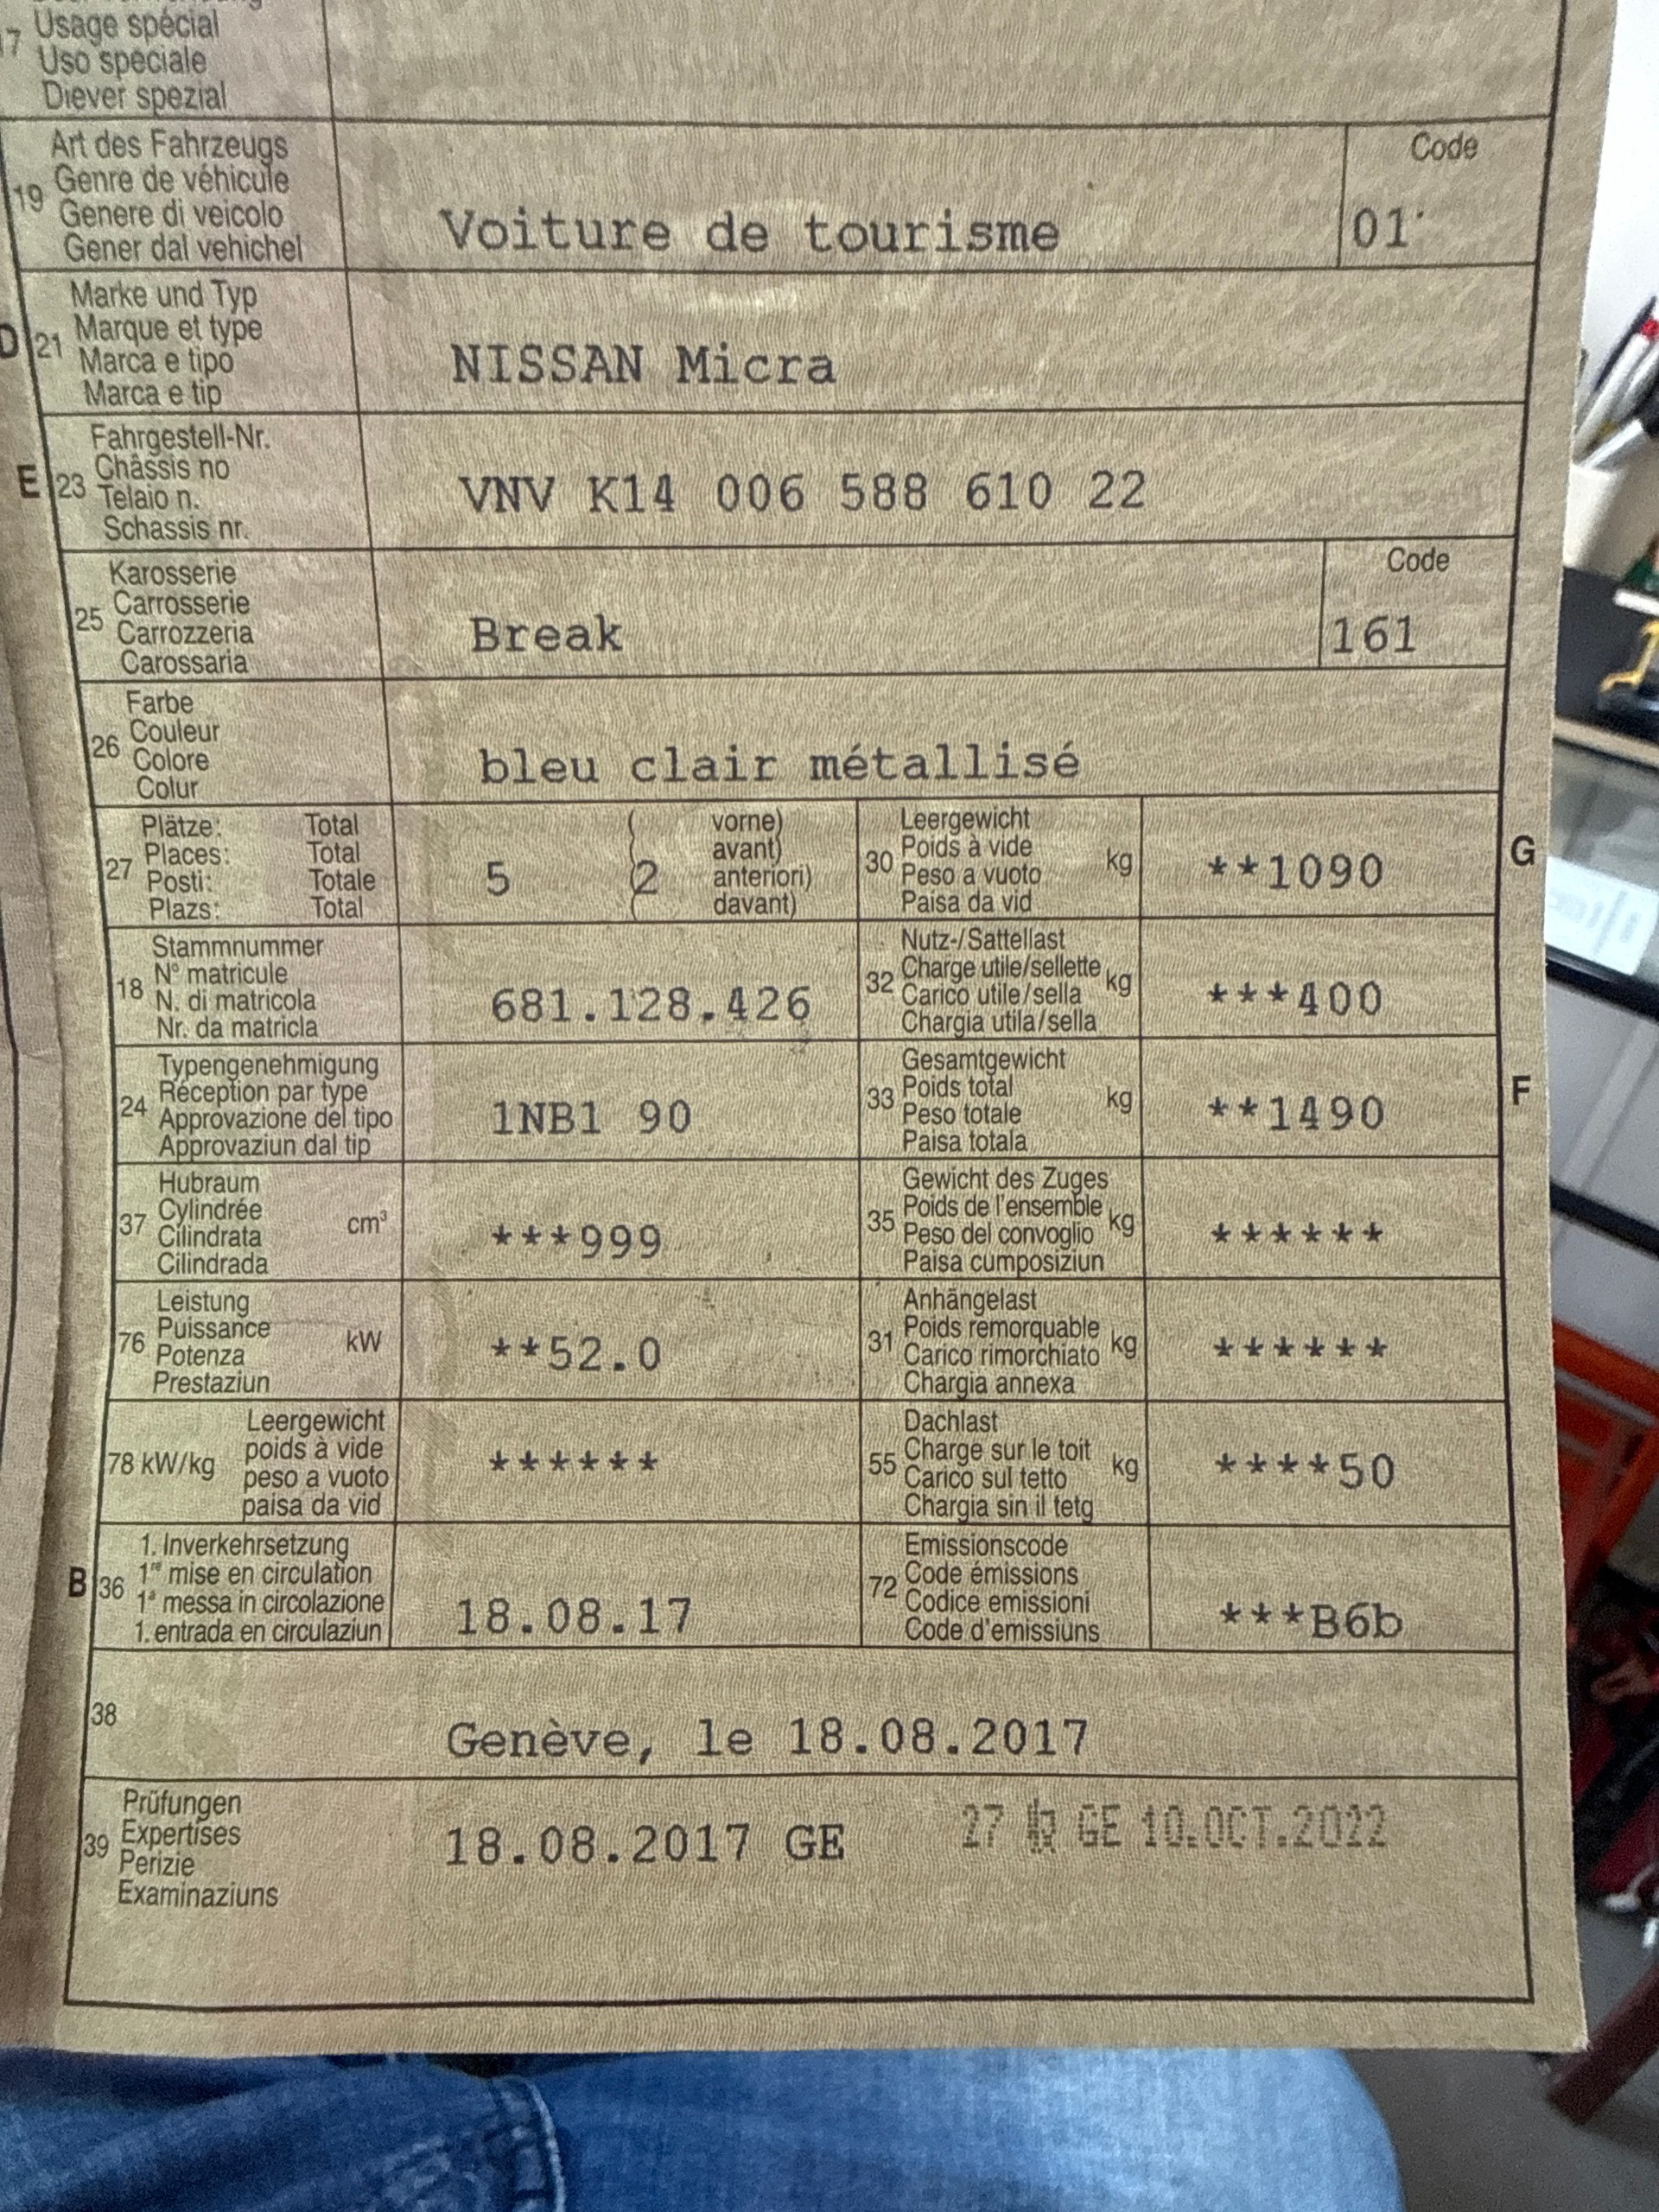 17 Usage spécial
Uso speciale
Diever spezial
Art des Fahrzeugs
19 Genre de véhicule
Genere di veicolo
Gener dal vehichel
Voiture de tourisme
Code
01
Marke und Typ
D 21 Marque et type
Marca e tipo
Marca e tip
NISSAN Micra
Fahrgestell-Nr.
E 23 Châssis no
Telaio n.
Schassis nr.
VNV K14 006 588 610 22
Karosserie
25 Carrosserie
Carrozzeria
Carossaria
Break
Code
161
Farbe
26 Couleur
Colore
Colur
bleu clair métallisé
Plätze: Total
27 Places: Total
Posti: Totale
Plazs: Total
5 (2
vorne)
avant)
anteriori)
davant)
Leergewicht
30 Poids à vide kg
Peso a vuoto
Paisa da vid
**1090
G
Stammnummer
18 N° matricule
N. di matricola
Nr. da matricla
681.128.426
Nutz-/Sattellast
32 Charge utile/sellette kg
Carico utile/sella
Chargia utila/sella
***400
Typengenehmigung
24 Réception par type
Approvazione del tipo
Approvaziun dal tip
1NB1 90
Gesamtgewicht
33 Poids total kg
Peso totale
Paisa totala
**1490
F
Hubraum
37 Cylindrée cm³
Cilindrata
Cilindrada
***999
Gewicht des Zuges
35 Poids de l'ensemble kg
Peso del convoglio
Paisa cumposiziun
******
Leistung
76 Puissance kW
Potenza
Prestaziun
**52.0
Anhängelast
31 Poids remorquable kg
Carico rimorchiato
Chargia annexa
******
78 kW/kg
Leergewicht
poids à vide
peso a vuoto
paisa da vid
******
Dachlast
55 Charge sur le toit kg
Carico sul tetto
Chargia sin il tetg
****50
1. Inverkehrsetzung
B 36 1re mise en circulation
1a messa in circolazione
1. entrada en circulaziun
18.08.17
Emissionscode
72 Code émissions
Codice emissioni
Code d'emissiuns
***B6b
38
Genève, le 18.08.2017
Prüfungen
39 Expertises
Perizie
Examinaziuns
18.08.2017 GE
27 GE 10.OCT.2022